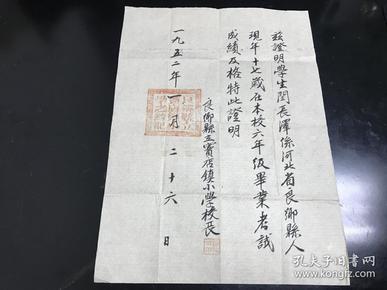 茲證明學生閆長澤係河北省良鄉縣人
現年十七歲在本校六年級畢業考試
成績及格特此證明
良鄉縣立竇店鎮小學校長
一九五二年一月二十六日
孔夫子旧书网